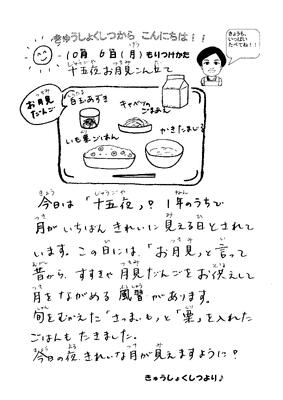 きゅうしょくしつから こんにちは！！
きょうも、
いっぱい
たべてね！！
10月 6日（月）もりつけかた
十五夜お月見こんだて
お月見
だんご
白玉あずき
キャベツの
ごまあえ
いも栗ごはん
かきたまじる
今日は「十五夜」♪ 1年のうちで
月がいちばんきれいに見える日とされて
います。この日には、「お月見」と言って
昔から、すすきや月見だんごをお供えして
月をながめる風習があります。
旬をむかえた「さつまいも」と「栗」を入れた
ごはんもたきました。
今日の夜、きれいな月が見えますように♪
きゅうしょくしつより♪